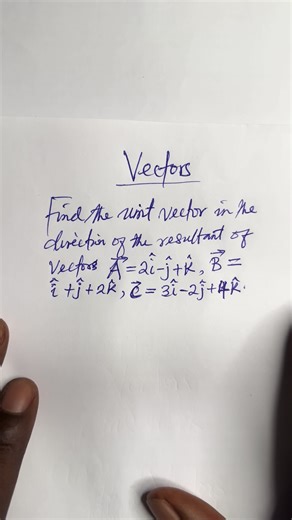 Vectors
Find the unit vector in the
direction of the resultant of
vectors A⃗ = 2î-ĵ+k̂, B⃗ =
î+ĵ+2k̂, C⃗ = 3î-2ĵ+4k̂.